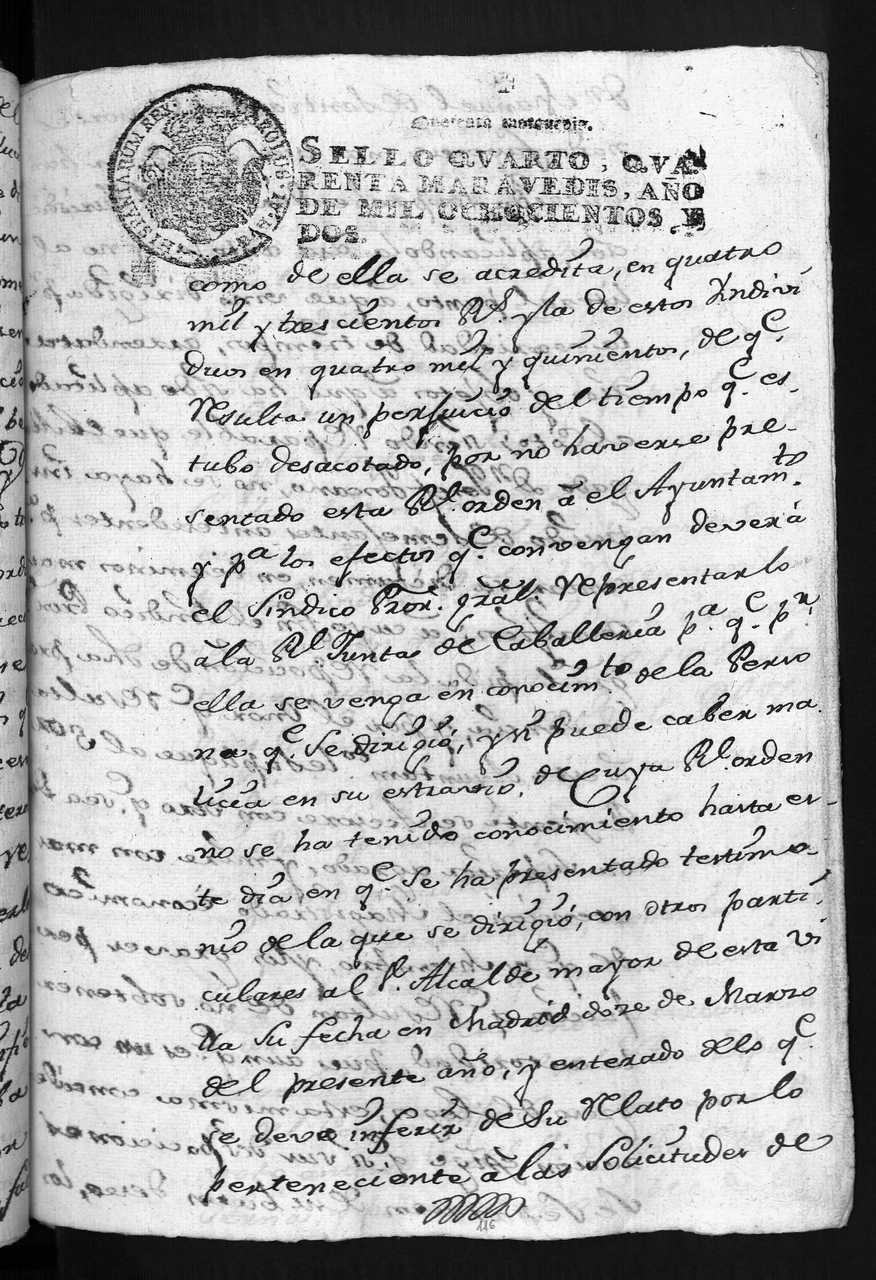 HISPANIARUM REX. CAROLUS. IV. D. G.
Quarenta maravedis.
SELLO QVARTO, QVA-
RENTA MARAVEDIS, AÑO
DE MIL OCHOCIENTOS Y
DOS.
como de ella se acredita, en quatro
mil y trescientos Rs. y la de estos Yndivi
duos en quatro mil y quinientos, de qe.
Resulta un perjuicio del tiempo qe. es-
tubo desacotado, por no haverse pre-
sentado esta Rl. orden â el Ayuntamto.
y pa. los efectos qe. convengan deverá
el Sindico Pror. gral. Representarlo
â la Rl. Junta de Caballeria pa. qe. pr.
ella se venga en conocimto. de la Perso
na qe. se dirigió, y si puede caber ma
licia en su estravio, de Cuya Rl. orden
no se ha tenido conocimiento hasta es-
te dia en qe. se ha presentado testimo-
nio de la que se dirigió, con otros parti-
culares al Sr. Alcalde mayor de esta vi
lla su fecha en Madrid doze de Marzo
del presente año, y enterado de lo qe.
se deve inferir de su Relato por lo
perteneciente a las solicitudes de
116